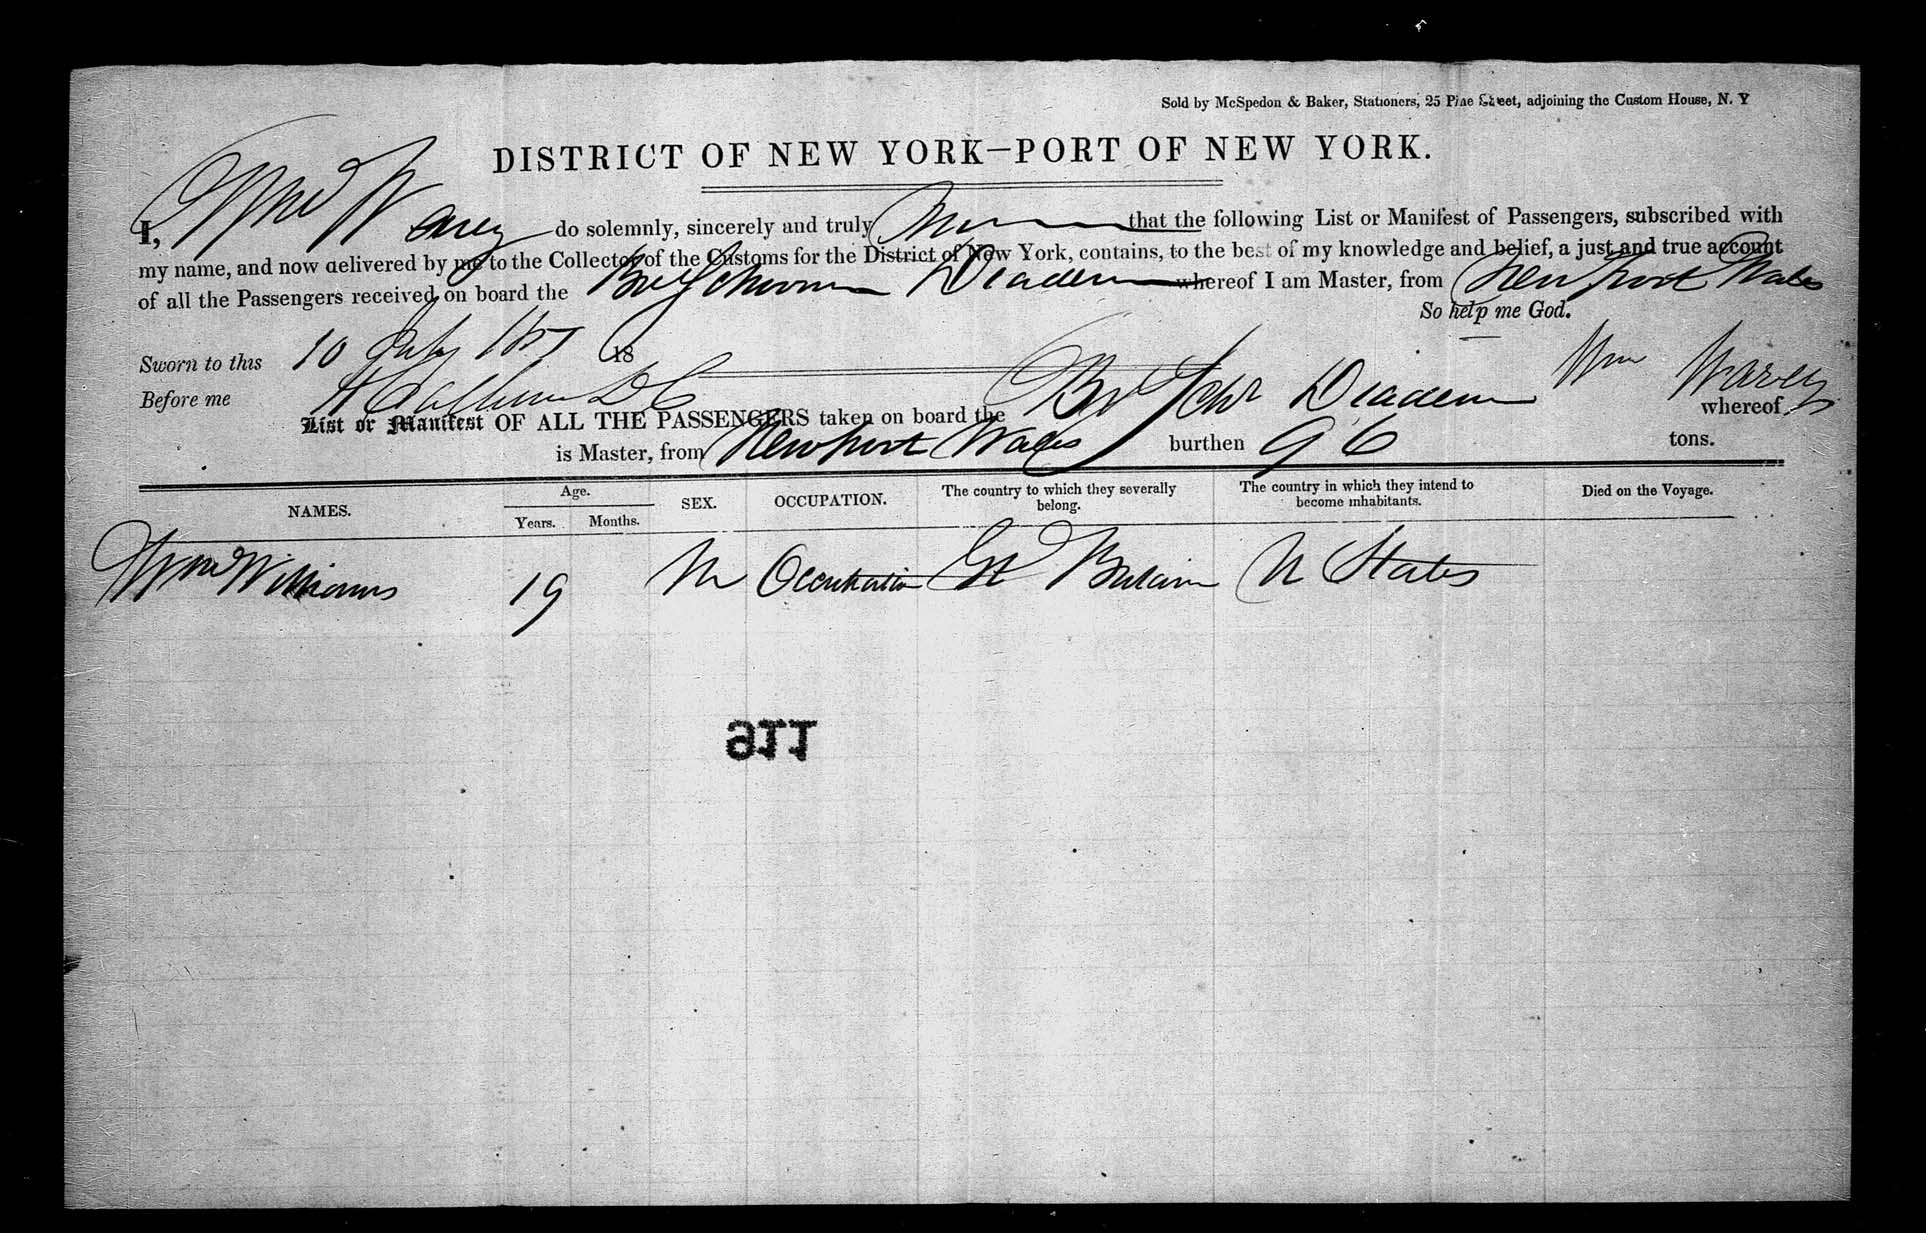 Sold by McSpedon & Baker, Stationers, 25 Pine Street, adjoining the Custom House, N. Y
DISTRICT OF NEW YORK—PORT OF NEW YORK.
I, Wm Warey do solemnly, sincerely and truly that the following List or Manifest of Passengers, subscribed with
my name, and now delivered by me to the Collector of the Customs for the District of New York, contains, to the best of my knowledge and belief, a just and true account
of all the Passengers received on board the Br Schooner Diadem whereof I am Master, from Newport Wales
So help me God.
Sworn to this 10 July 185 18
Before me
Wm
List or Manifest OF ALL THE PASSENGERS taken on board the Br Schr Diadem whereof
is Master, from Newport Wales burthen 96 tons.
NAMES. Age. Years. Months. SEX. OCCUPATION. The country to which they severally belong. The country in which they intend to become inhabitants. Died on the Voyage.
Wm Williams 19 M Occupation Gt Britain U States
911